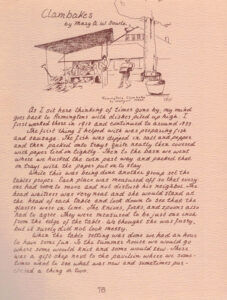 Clambakes
by Mary A. W. Sowle
As I sit here thinking of times gone by, my mind
goes back to Pennington's with dishes piled up high. I
first worked there in 1918 and continued to around 1937.
The first thing I helped with was preparing fish
and sausage. The fish was dipped in salt and pepper
and then packed onto trays quite neatly then covered
with paper tied on tightly. Then to the barn we went
where we husked the corn part way and packed that
on trays with the paper put on to stay.
While this was being done another group set the
tables proper. Each place was measured off so that every
one had room to move and not disturb his neighbor. The
head waitress was very neat and she would stand at
the head of each table and look down to see that the
glasses were in line. The knives, forks, and spoons also
had to agree. They were measured to be just one inch
from the edge of the table. We thought she was fussy,
but it surely did not look messy.
When the table setting was done we had an hour
to have some fun. To the Summer house we would go
where some would knit and some would sew. There
was a gift shop next to the pavilion where we some-
times went to see what was new and sometimes pur-
chased a thing or two.
78